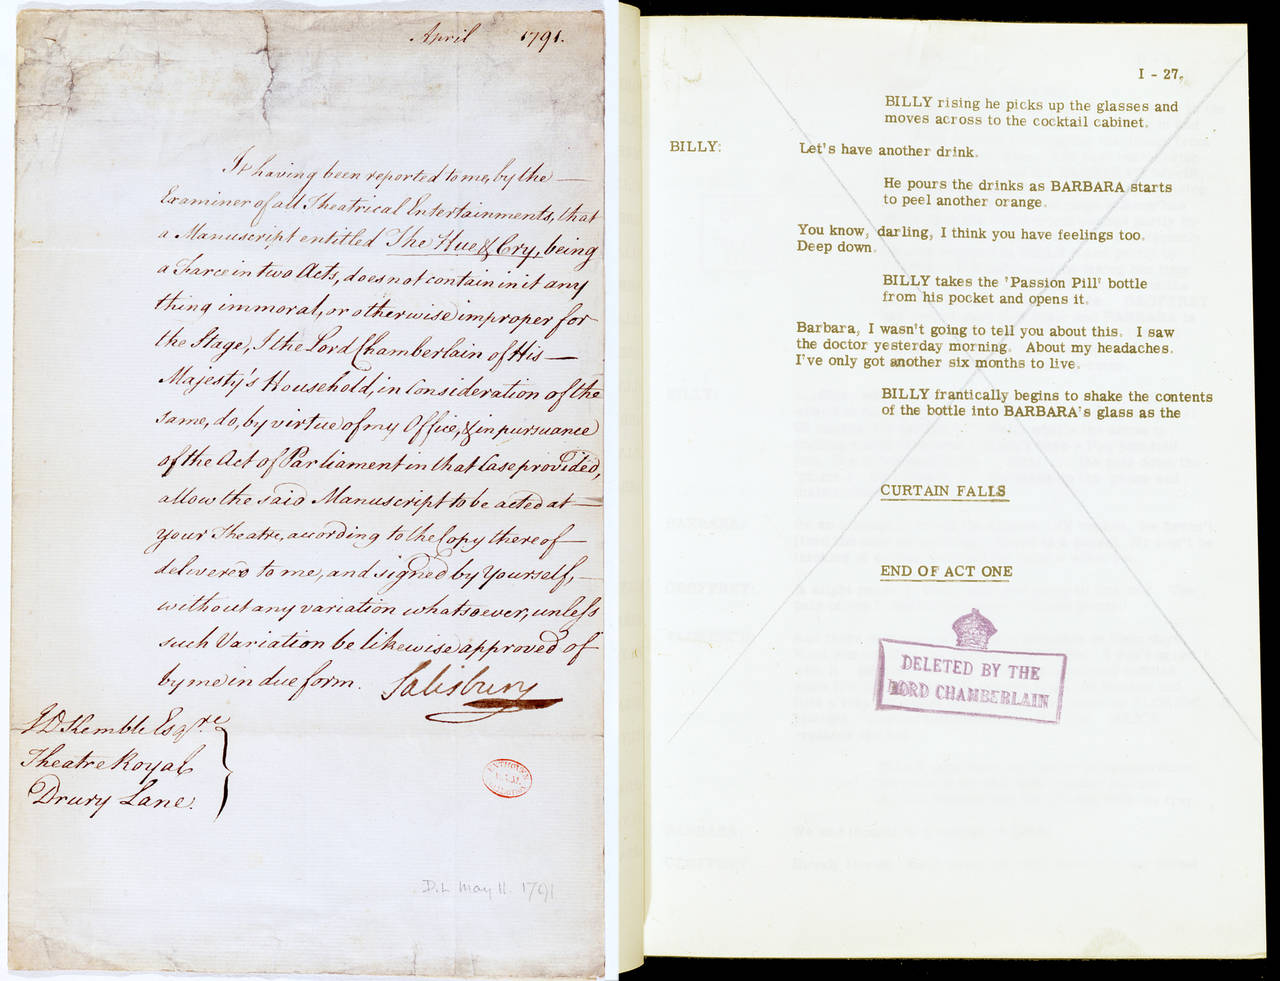 April 1791.
It having been reported to me, by the
Examiner of all Theatrical Entertainments, that
a Manuscript entitled The Hue & Cry, being
a Farce in two Acts, does not contain in it any
thing immoral, or otherwise improper for
the Stage, I the Lord Chamberlain of His
Majesty's Household, in Consideration of the
same, do, by virtue of my Office, & in pursuance
of the Act of Parliament in that Case provided,
allow the said Manuscript to be acted at
your Theatre, according to the Copy thereof
delivered to me, and signed by Yourself,
without any variation whatsoever, unless
such Variation be likewise approved of
by me in due form. Salisbury
J P Kemble Esqre.
Theatre Royal
Drury Lane.
D.L. May 11. 1791
I - 27.
BILLY rising he picks up the glasses and
moves across to the cocktail cabinet.
BILLY: Let's have another drink.
He pours the drinks as BARBARA starts
to peel another orange.
You know, darling, I think you have feelings too.
Deep down.
BILLY takes the 'Passion Pill' bottle
from his pocket and opens it.
Barbara, I wasn't going to tell you about this. I saw
the doctor yesterday morning. About my headaches.
I've only got another six months to live.
BILLY frantically begins to shake the contents
of the bottle into BARBARA's glass as the
CURTAIN FALLS
END OF ACT ONE
DELETED BY THE
LORD CHAMBERLAIN